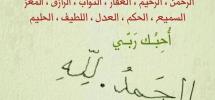 الرحمن ، الرحيم ، الغفار ، التواب ، الرازق ، المعز
السميع ، الحكم ، العدل ، اللطيف ، الحليم
أُحِبُّك رَبّي
الحَمدُ لِلّهِ